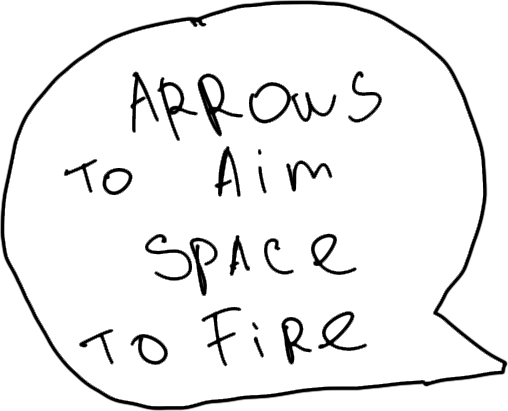 ARROWS
TO Aim
SPACe
TO FiRe